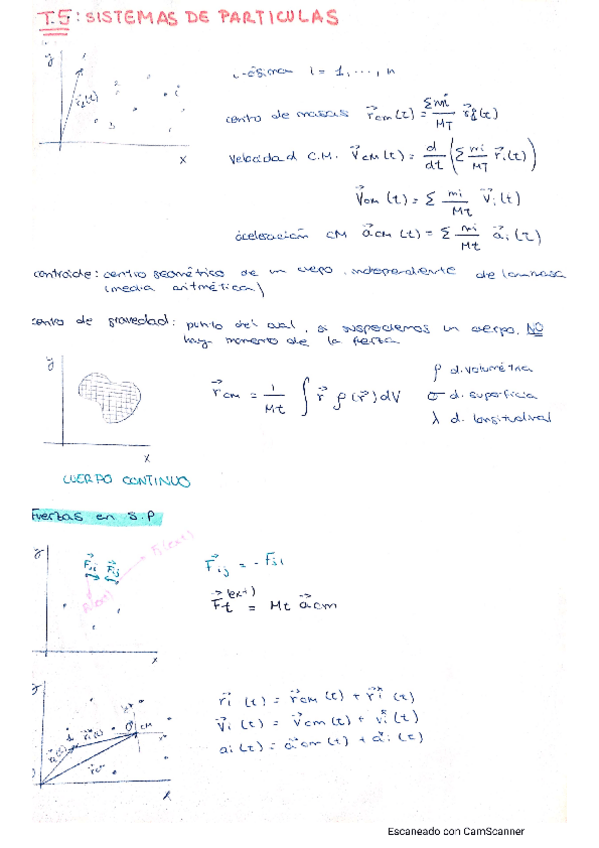 T.5: SISTEMAS DE PARTICULAS
y
i-ésima i = 1, ..., n
r⃗i(t)
i
centro de masas r⃗cm(t) = Σ mi/MT r⃗i(t)
x
Velocidad C.M. V⃗cm(t) = d/dt (Σ mi/MT r⃗i(t))
V⃗cm(t) = Σ mi/Mt V⃗i(t)
aceleración CM a⃗cm(t) = Σ mi/Mt a⃗i(t)
centroide: centro geométrico de un cuerpo, independiente de la masa
(media aritmética)
centro de gravedad: punto del cual, si suspendemos un cuerpo, NO
hay momento de la fuerza
y
r⃗cm = 1/Mt ∫ r⃗ ρ(r⃗) dV
ρ d. volumétrica
σ d. superficial
λ d. longitudinal
x
CUERPO CONTINUO
Fuerzas en S.P
y
Fj(ext)
F⃗ji F⃗ij
F⃗ij = - F⃗ji
Fi(ext)
F⃗t(ext) = Mt a⃗cm
x
y
r⃗i(t) = r⃗cm(t) + r⃗i*(t)
V⃗i(t) = V⃗cm(t) + v⃗i*(t)
ai(t) = a⃗cm(t) + a⃗i(t)
CM
x
Escaneado con CamScanner